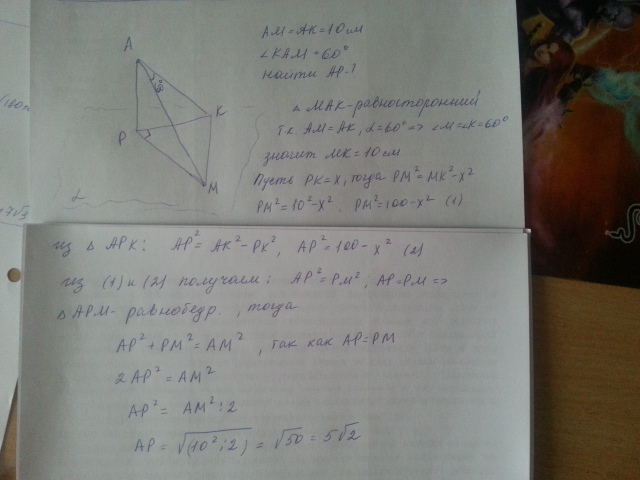 AM=AK=10см
∠KAM=60°
найти AP-?
A
60°
K
P
M
α
△ MAK-равносторонний
т.к. AM=AK, ∠=60° => ∠M=∠K=60°
значит MK=10см
Пусть PK=x, тогда PM²=MK²-x²
PM²=10²-x². PM²=100-x² (1)
из △ APK: AP²=AK²-PK², AP²=100-x² (2)
из (1) и (2) получаем: AP²=PM², AP=PM =>
△ APM- равнобедр., тогда
AP²+PM²=AM², так как AP=PM
2AP²=AM²
AP²= AM²:2
AP= √(10²:2) = √50 = 5√2